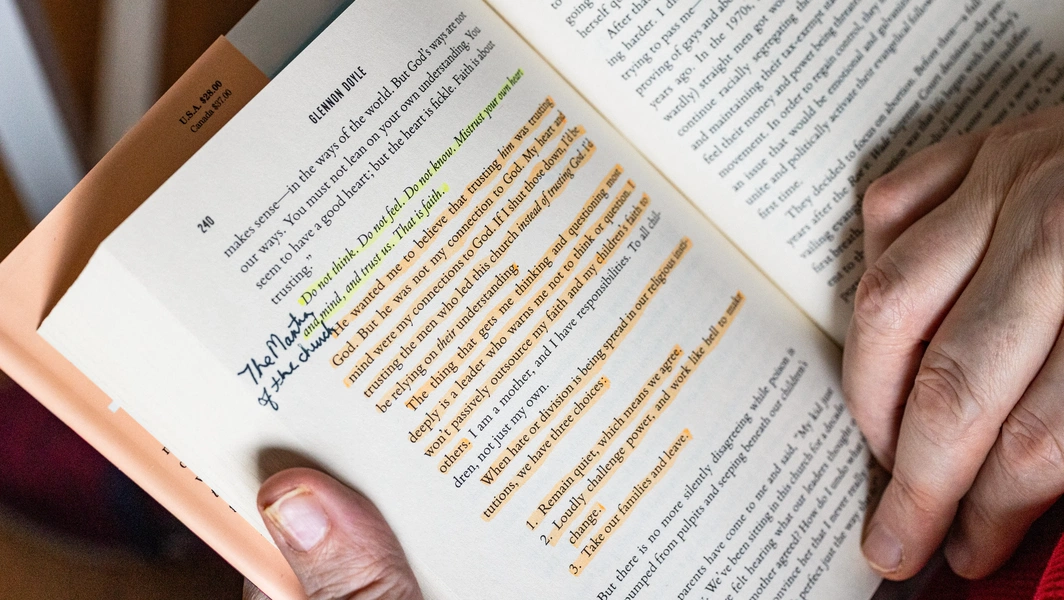 U.S.A. $28.00
Canada $37.00
240
GLENNON DOYLE
makes sense—in the ways of the world. But God's ways are not
our ways. You must not lean on your own understanding. You
seem to have a good heart; but the heart is fickle. Faith is about
trusting."
Do not think. Do not feel. Do not know. Mistrust your own heart
and mind, and trust us. That is faith.
The Mantra
of the church
He wanted me to believe that trusting him was trusting
God. But he was not my connection to God. My heart and
mind were my connections to God. If I shut those down, I'd be
trusting the men who led this church instead of trusting God. I'd
be relying on their understanding.
The thing that gets me thinking and questioning most
deeply is a leader who warns me not to think or question. I
won't passively outsource my faith and my children's faith to
others. I am a mother, and I have responsibilities. To all chil-
dren, not just my own.
When hate or division is being spread in our religious insti-
tutions, we have three choices:
1. Remain quiet, which means we agree.
2. Loudly challenge power, and work like hell to make
change.
3. Take our families and leave.
But there is no more silently disagreeing while poison is
pumped from pulpits and seeping beneath our children's
parents have come to me and said, "My kid just
We've been sitting in this church for a decade
felt hearing what our leaders thought
mother agreed? How do I undo
convince her that I never really
perfect just the way
going
herself qu
After tha
ing harder. I di
trying to pass me—
proving of gays and abo
years ago. In the 1970s,
wardly) straight men got wor
continue racially segregating the
and maintaining their tax-exempt stat
feel their money and power being threate
movement. In order to regain control, they
an issue that would be emotional and galvanizing
unite and politically activate their evangelical follow
first time.
They decided to focus on abortion. Before then—a full
years after the Roe v. Wade
vailing evan
first breath